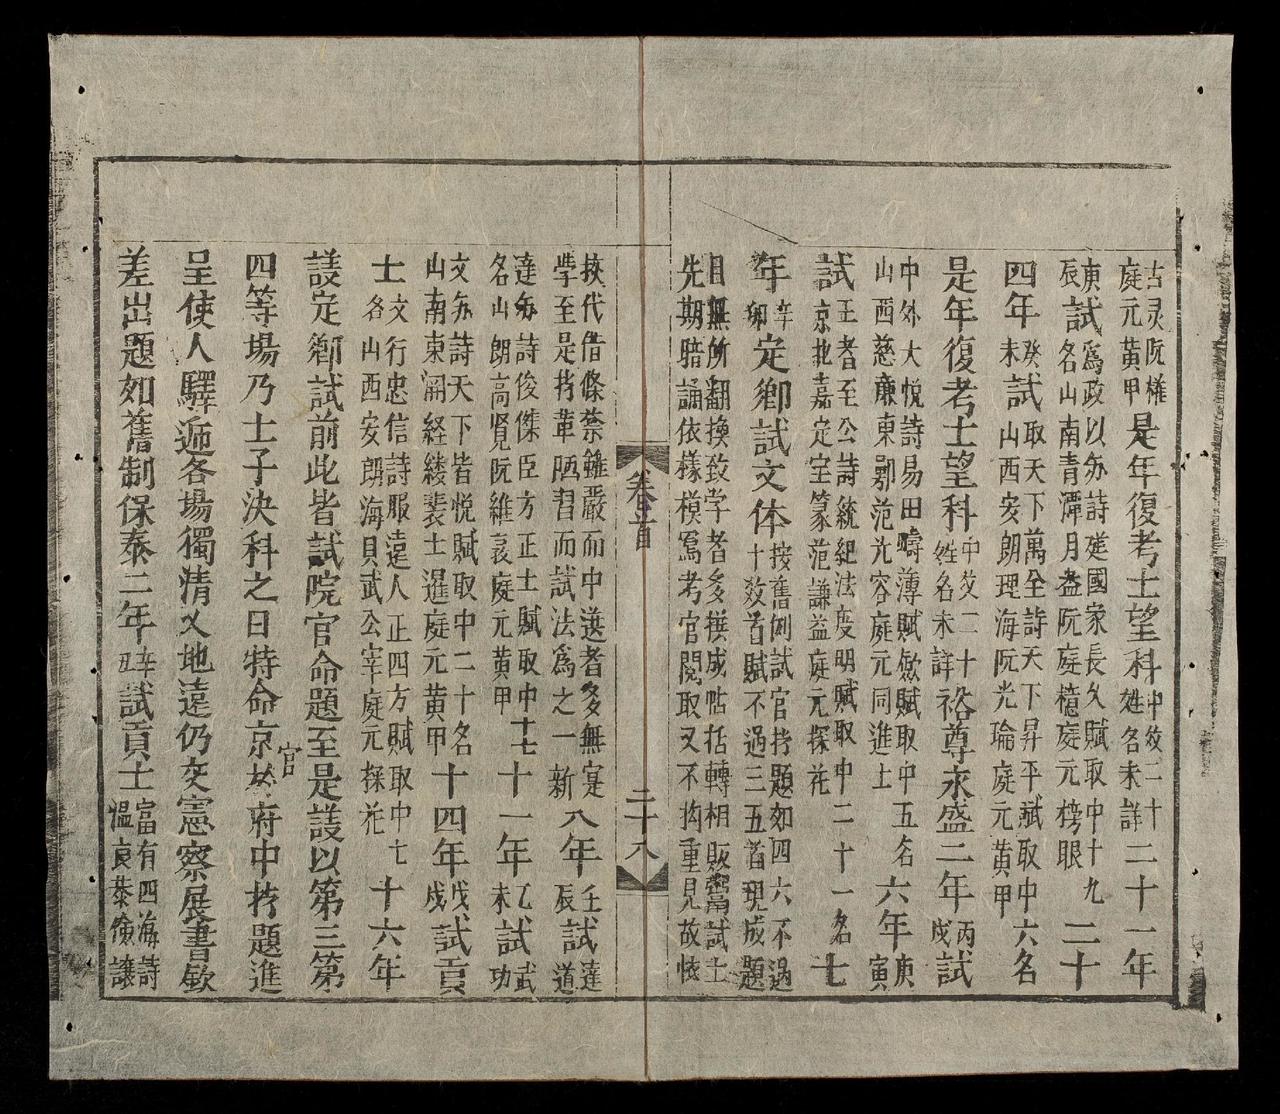 古灵阮權庭元黃甲是年復考士望科中攷二十姓名未詳二十一年
庚辰試爲政以𠫾詩建國家長久賦取中十九名山南青潭月盎阮庭檍庭元榜眼二十
四年癸未試取天下萬全詩天下昇平賦取中六名山西安朗理海阮光瑜庭元黃甲
是年復考士望科中攷二十姓名未詳裕尊永盛二年丙戌試
中外大悅詩易田疇薄賦歛賦取中五名山西慈廉東鄂范光容庭元同進士六年庚寅
試王者至公詩統紀法度明賦取中二十一名京北嘉定宝篆范謙益庭元探花七
年辛卯定鄉試文体按舊例試官持題如四六不過十数首賦不過三五首現成題
目無所翻換致学者多撰成帖括轉相販鬻試士先期暗誦依樣模寫考官閱取又不拘重見故懷
卷首 二十八
挾代借條禁雖嚴而中選者多無寔學至是持革陋習而試法爲之一新八年壬辰試達道
達𠫾詩俊傑臣方正士賦取中十七名山朗高賢阮維衰庭元黃甲十一年乙未試武功
文𠫾詩天下皆悅賦取中二十名山南東関経縷裴士暹庭元黃甲十四年戊戌試貢
士文行忠信詩服遠人正四方賦取中七名山西安朗海貝武公宰庭元探花十六年
議定鄉試前此皆試院官命題至是議以第三第
四等塲乃士子決科之日特命京官於府中持題進
呈使人驛遞各塲獨清乂地遠仍交憲察展書歛
差出題如舊制保泰二年辛丑試貢士富有四海詩温良恭儉讓